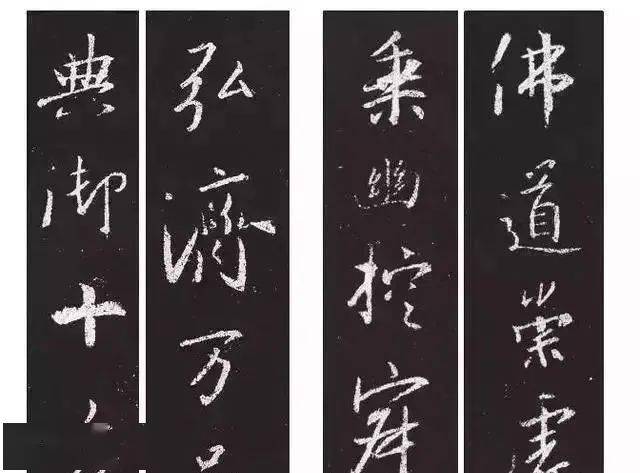 佛道崇虛
乘幽控寂
弘濟万
典御十